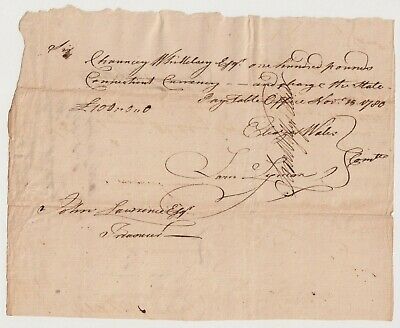 Sir
Chauncey Whittlesey Esqr. one hundred pounds
Connecticut Currency — and charge the State
£100 " 0 " 0 Pay Table Office Novr. 1780
Eleazr Wales
Saml Lyman
Comtee
John Lawrence Esqr
Treasurer